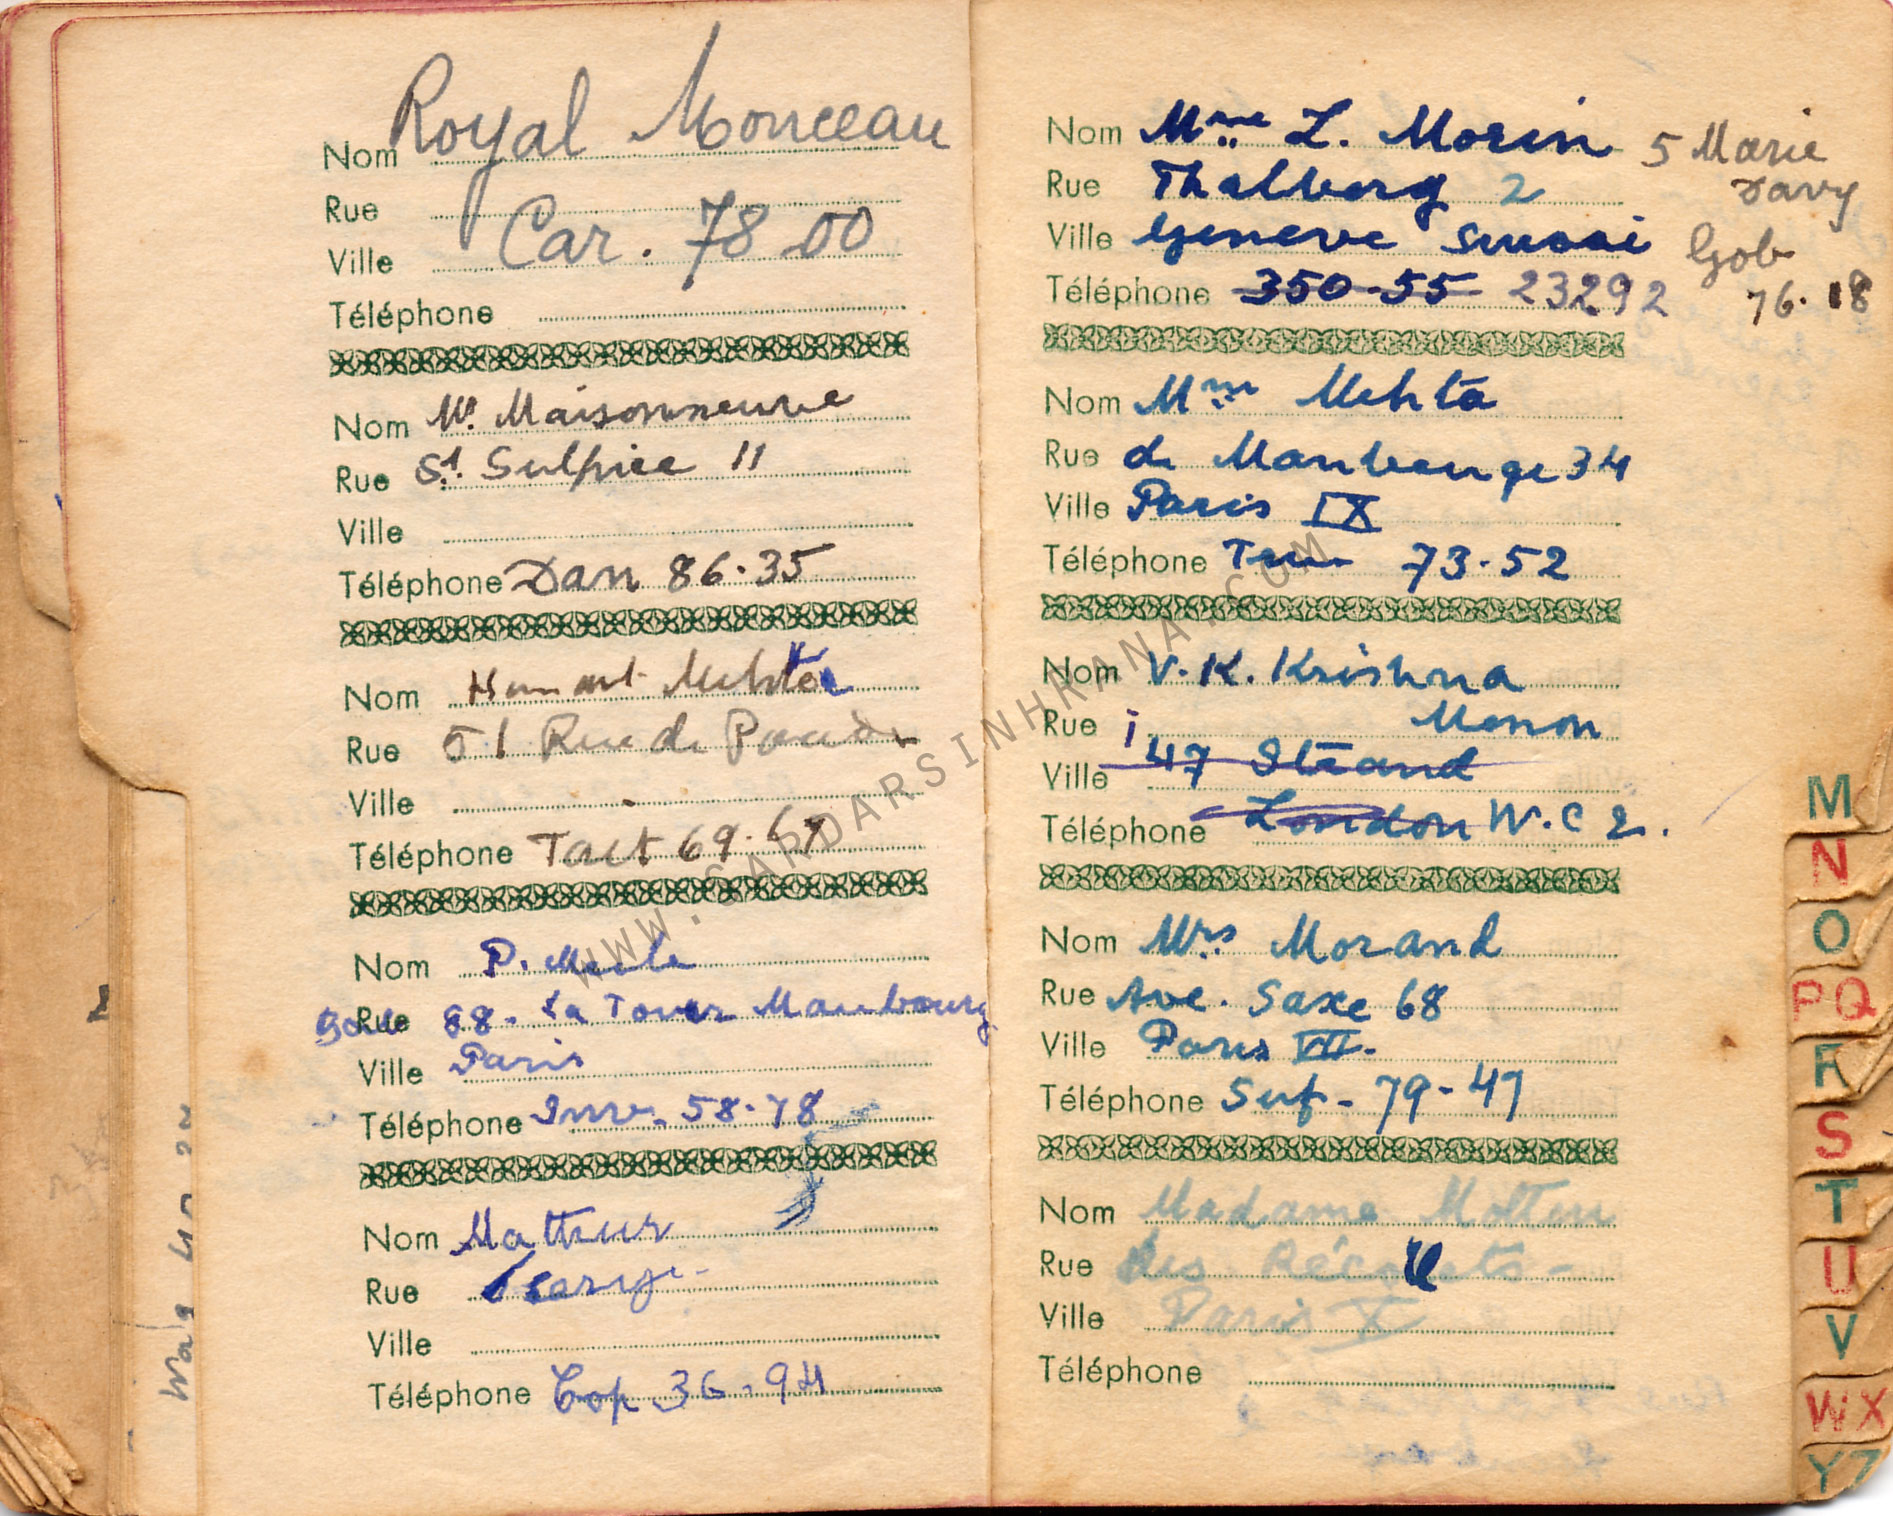 Royal Monceau
Nom
Rue
Car. 78 00
Ville
Téléphone
Nom Mr. Maisonneuve
Rue St. Sulpice 11
Ville
Téléphone Dan 86.35
Nom Mehta
Rue 51 Rue de
Ville
Téléphone Tait 69.67
Nom P. Meile
Rue 88. La Tour Maubourg
Ville Paris
Téléphone Inv. 58.78
Nom Mathur
Rue
Ville
Téléphone Cop 36.94
Nom Mme L. Morin
Rue Thalberg 2
Ville Geneve
Téléphone 350-55 23292
5 Marie
Davy
Gob
76.18
Nom Mme Mehta
Rue de Maubeuge 34
Ville Paris IX
Téléphone Tru 73.52
Nom V. K. Krishna
Rue Menon
Ville 47 Strand
Téléphone London W.C 2.
Nom Mrs Morand
Rue Ave. Saxe 68
Ville Paris VII.
Téléphone Suf - 79-47
Nom Madame
Rue des Récollets -
Ville Paris X
Téléphone
M
N
O
PQ
R
S
T
U
V
WX
YZ
WWW.SARDARSINHRANA.COM